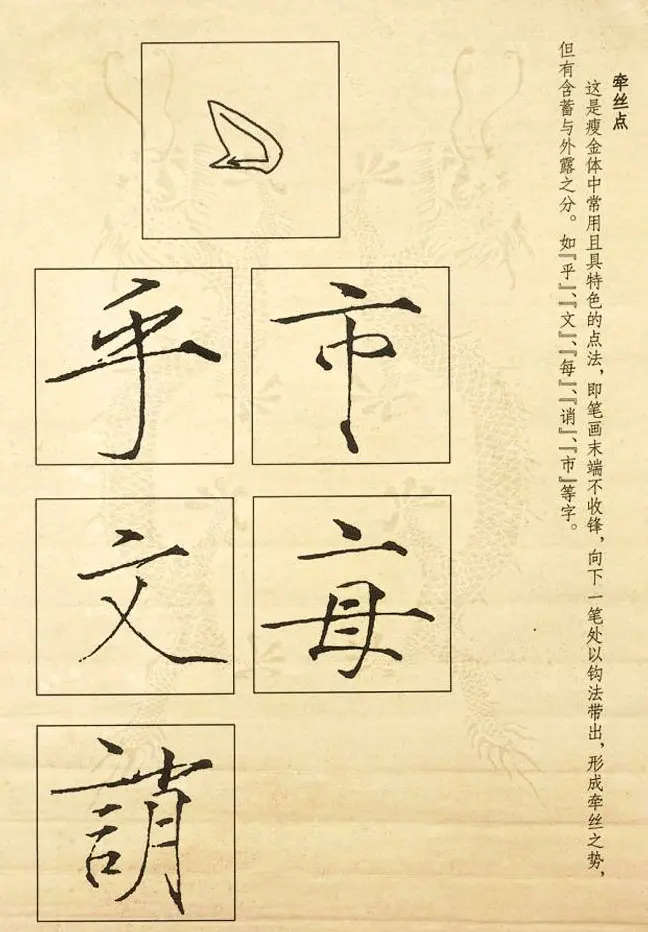 牵丝点
这是瘦金体中常用且具特色的点法，即笔画末端不收锋，向下一笔处以钩法带出，形成牵丝之势，
但有含蓄与外露之分。如『乎』、『文』、『每』、『诮』、『市』等字。
乎 市
文 每
誚